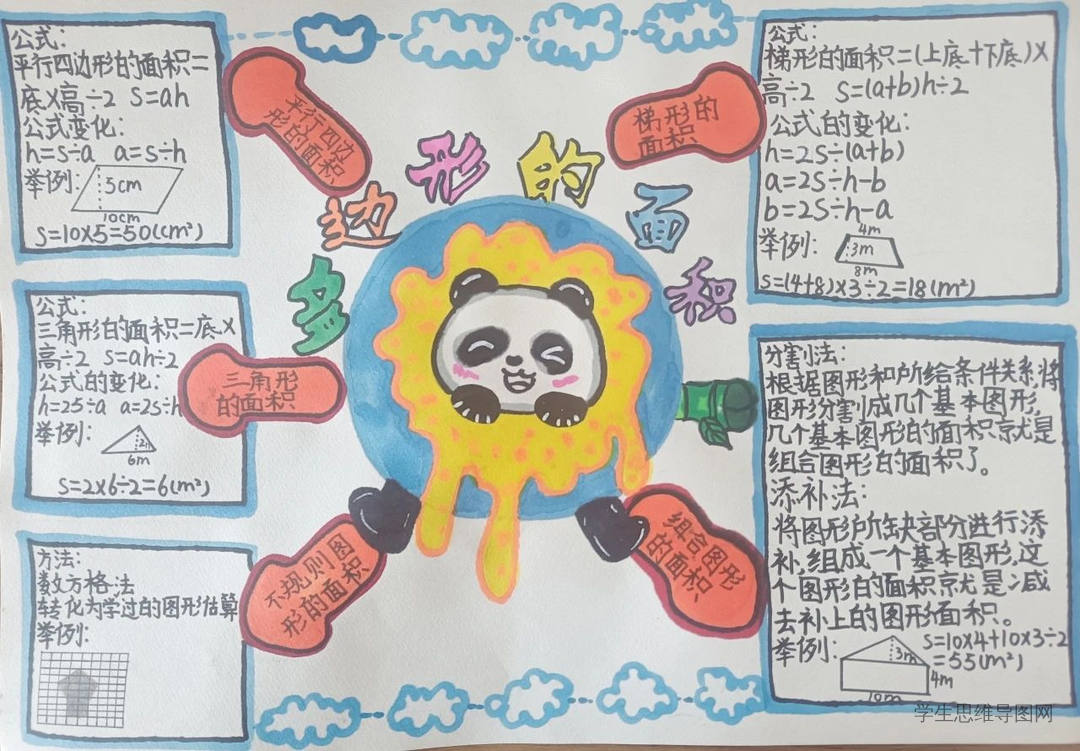 多边形的面积
平行四边
形的面积
公式:
平行四边形的面积=
底×高÷2 S=ah
公式变化:
h=S÷a a=S÷h
举例:
5cm
10cm
S=10×5=50(cm²)
三角形
的面积
公式:
三角形的面积=底×
高÷2 S=ah÷2
公式的变化:
h=2S÷a a=2S÷h
举例:
6m
S=2×6÷2=6(m²)
不规则图
形的面积
方法:
数方格法
转化为学过的图形估算
举例:
梯形的
面积
公式:
梯形的面积=(上底+下底)×
高÷2 S=(a+b)h÷2
公式的变化:
h=2S÷(a+b)
a=2S÷h-b
b=2S÷h-a
举例:
4m
3m
8m
S=(4+8)×3÷2=18(m²)
组合图形
的面积
分割法:
根据图形和所给条件关系,将
图形分割成几个基本图形,
几个基本图形的面积京就是
组合图形的面积了。
添补法:
将图形所缺部分进行添
补,组成一个基本图形,这
个图形的面积就是减
去补上的图形面积。
举例:
3m
4m
10m
S=10×4+10×3÷2
=55(m²)
学生思维导图网